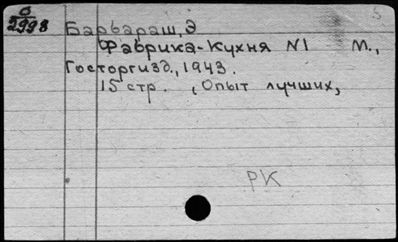 б
2998
Барбараш, Э
Фабрика-Кухня N1 М.,
Госторгизд., 1943.
15 стр. (Опыт лучших,
РК